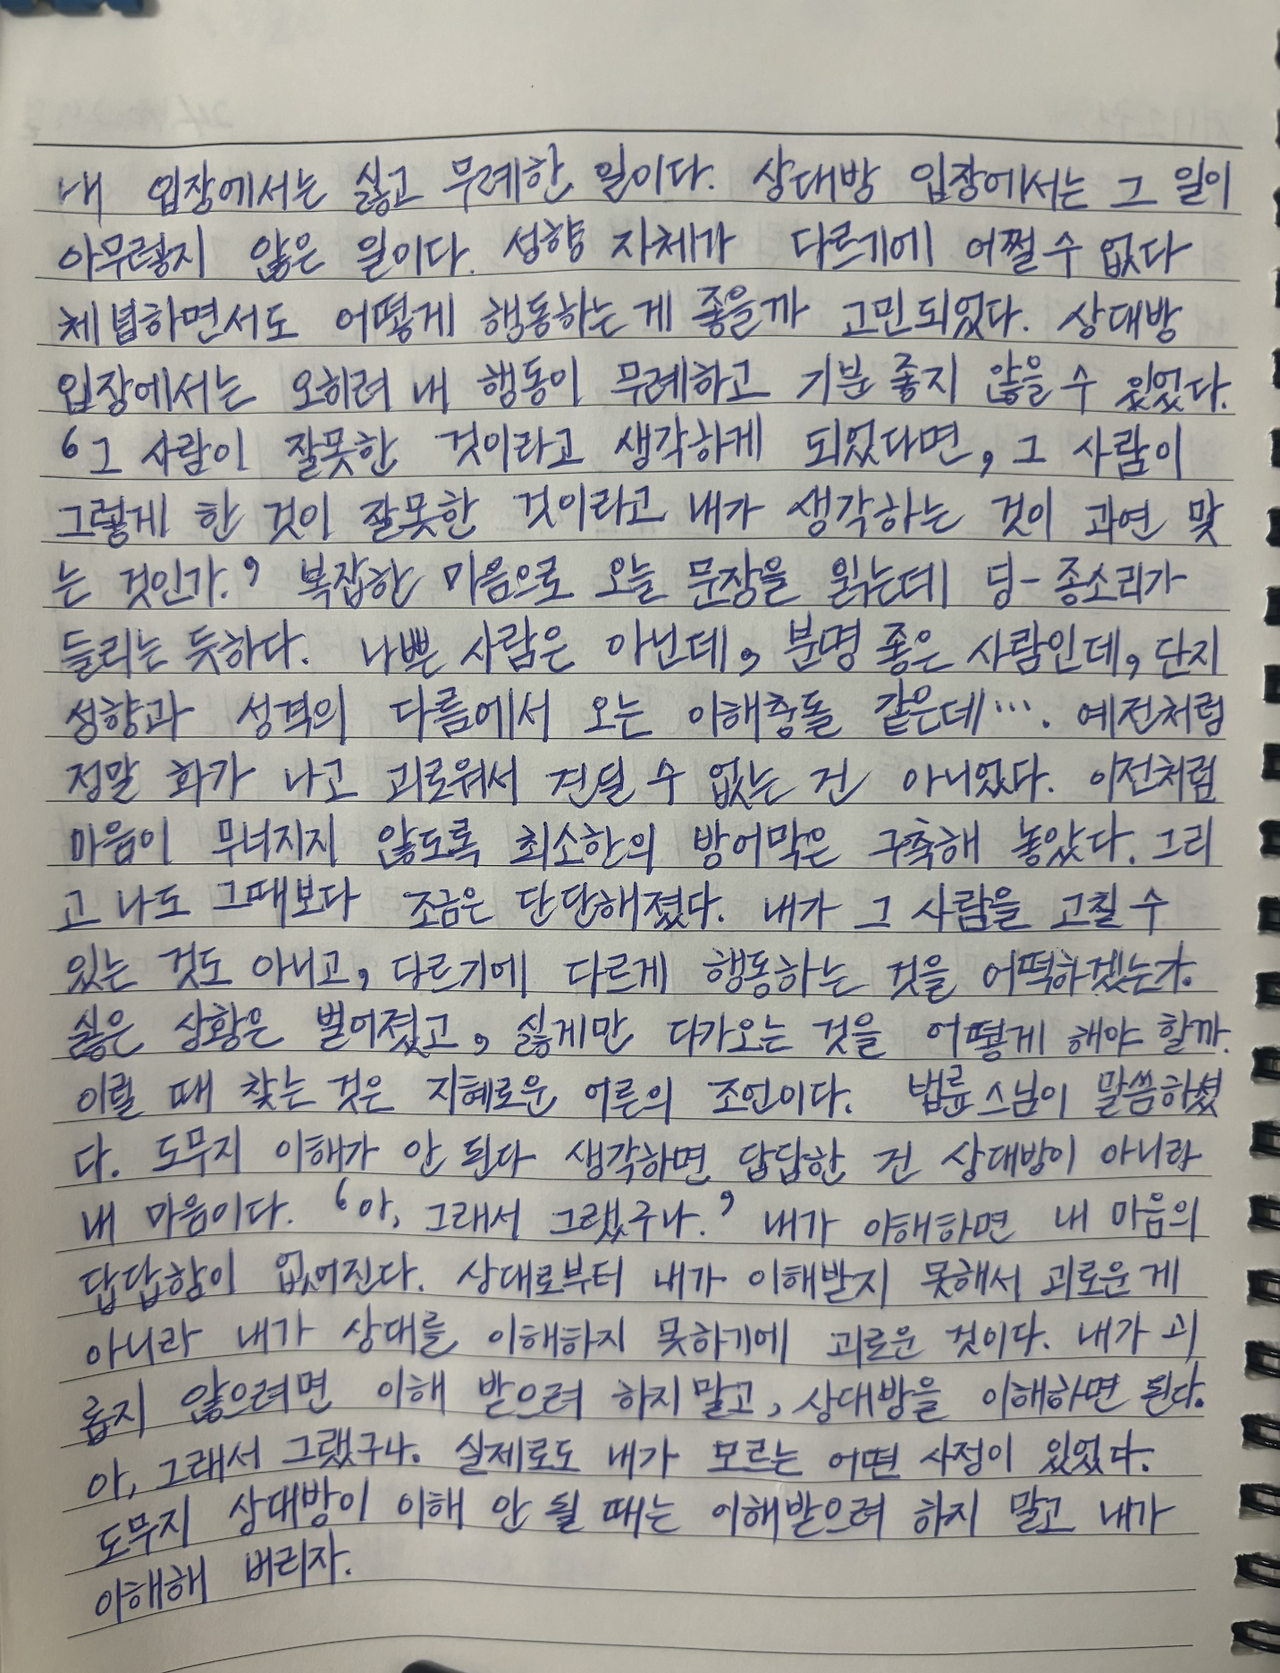 내 입장에서는 싫고 무례한 일이다. 상대방 입장에서는 그 일이
아무렇지 않은 일이다. 성향 자체가 다르기에 어쩔 수 없다
체념하면서도 어떻게 행동하는 게 좋을까 고민되었다. 상대방
입장에서는 오히려 내 행동이 무례하고 기분 좋지 않을 수 있었다.
'그 사람이 잘못한 것이라고 생각하게 되었다면, 그 사람이
그렇게 한 것이 잘못한 것이라고 내가 생각하는 것이 과연 맞
는 것인가.' 복잡한 마음으로 오늘 문장을 읽는데 딩-종소리가
들리는 듯하다. 나쁜 사람은 아닌데, 분명 좋은 사람인데, 단지
성향과 성격의 다름에서 오는 이해충돌 같은데…. 예전처럼
정말 화가 나고 괴로워서 견딜 수 없는 건 아니었다. 이전처럼
마음이 무너지지 않도록 최소한의 방어막은 구축해 놓았다. 그리
고 나도 그때보다 조금은 단단해졌다. 내가 그 사람을 고칠 수
있는 것도 아니고, 다르기에 다르게 행동하는 것을 어떡하겠는가.
싫은 상황은 벌어졌고, 싫게만 다가오는 것을 어떻게 해야 할까.
이럴 때 찾는 것은 지혜로운 어른의 조언이다. 법륜스님이 말씀하셨
다. 도무지 이해가 안 된다 생각하면 답답한 건 상대방이 아니라
내 마음이다. '아, 그래서 그랬구나.' 내가 이해하면 내 마음의
답답함이 없어진다. 상대로부터 내가 이해받지 못해서 괴로운 게
아니라 내가 상대를 이해하지 못하기에 괴로운 것이다. 내가 괴
롭지 않으려면 이해 받으려 하지 말고, 상대방을 이해하면 된다.
아, 그래서 그랬구나. 실제로도 내가 모르는 어떤 사정이 있었다.
도무지 상대방이 이해 안 될 때는 이해받으려 하지 말고 내가
이해해 버리자.